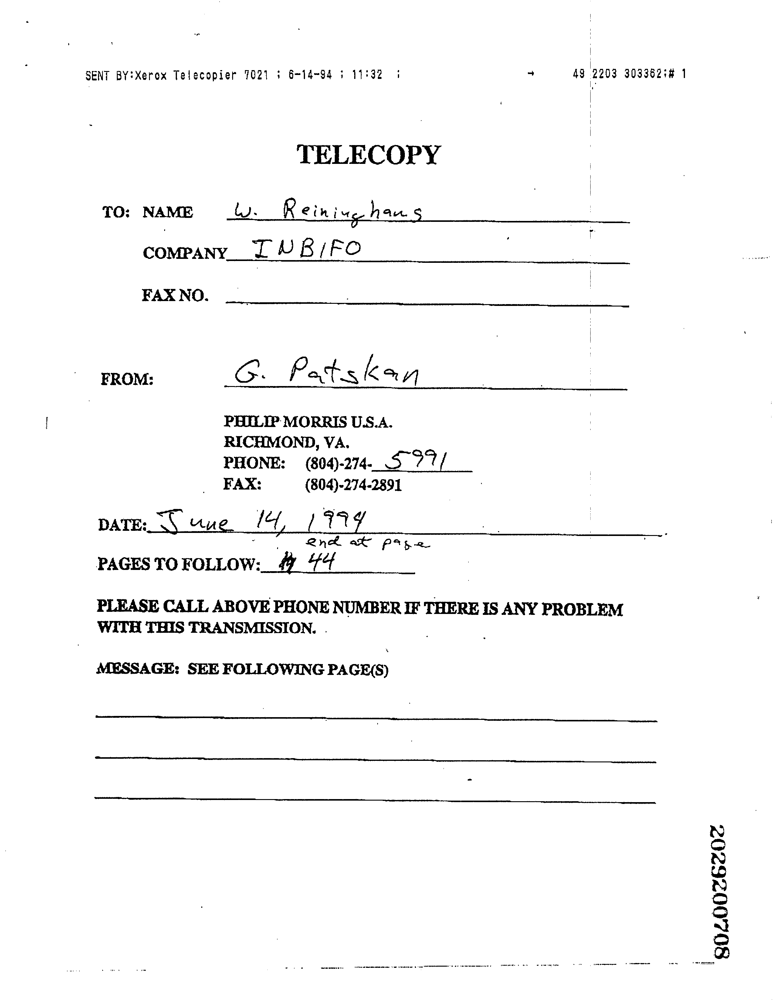 SENT BY:Xerox Telecopier 7021 ; 6-14-94 ; 11:32 ; → 49 2203 303362;# 1
TELECOPY
TO: NAME W. Reininghaus
COMPANY INBIFO
FAX NO.
FROM: G. Patskan
PHILIP MORRIS U.S.A.
RICHMOND, VA.
PHONE: (804)-274- 5991
FAX: (804)-274-2891
DATE: June 14, 1994
end at page
PAGES TO FOLLOW: 44
PLEASE CALL ABOVE PHONE NUMBER IF THERE IS ANY PROBLEM
WITH THIS TRANSMISSION.
MESSAGE: SEE FOLLOWING PAGE(S)
2029200708